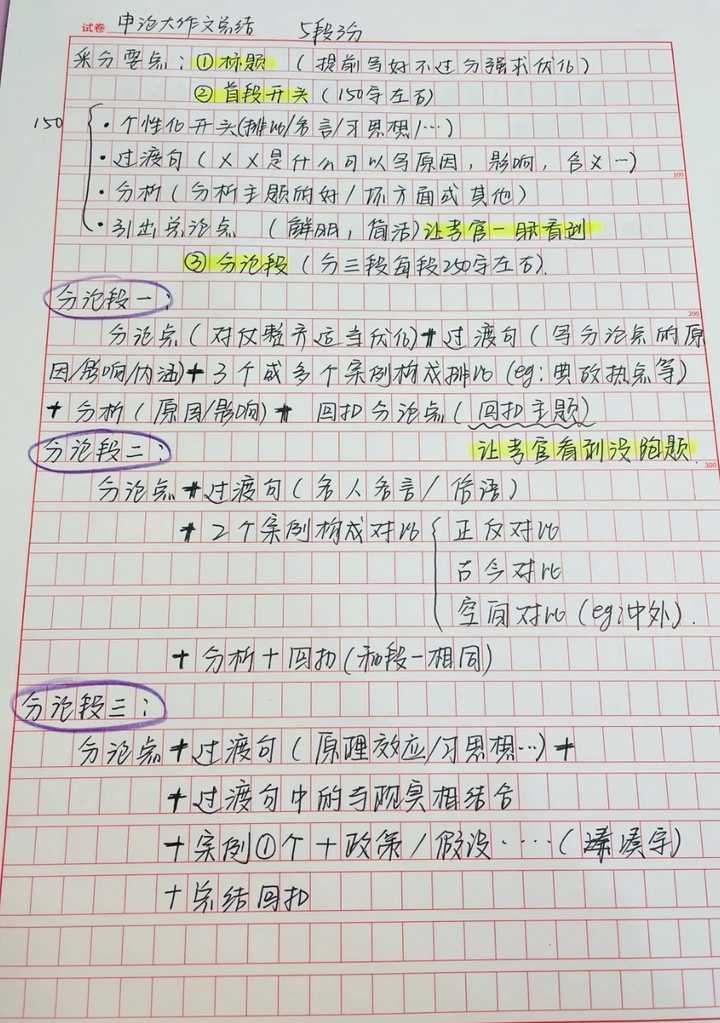 试卷 申论大作文总结 5段3分
采分要点：①标题（提前写好不过分强求优化）
②首段开头（150字左右）
150
·个性化开头(排比/名言/习思想/…)
·过渡句（××是什么可以写原因，影响，含义…）
100
·分析（分析主题的好/坏方面或其他）
·引出总论点（鲜明，简洁）让考官一眼看到
③分论段（分三段每段250字左右）.
分论段一：
200
分论点（对仗整齐适当优化)+过渡句（写分论点的原
因/影响/内涵)+3个或多个案例构成排比(eg:典故热点等)
+分析（原因/影响)+ 回扣分论点（回扣主题）
分论段二： 让考官看到没跑题.
300
分论点+过渡句（名人名言/俗语）
+2个案例构成对比 正反对比
古今对比
空间对比(eg:中外).
+分析+回扣(和段一相同)
分论段三：
分论点+过渡句（原理效应/习思想…)+
+过渡句中的与现实相结合
+案例①个+政策/假设····(凑字)
+总结回扣